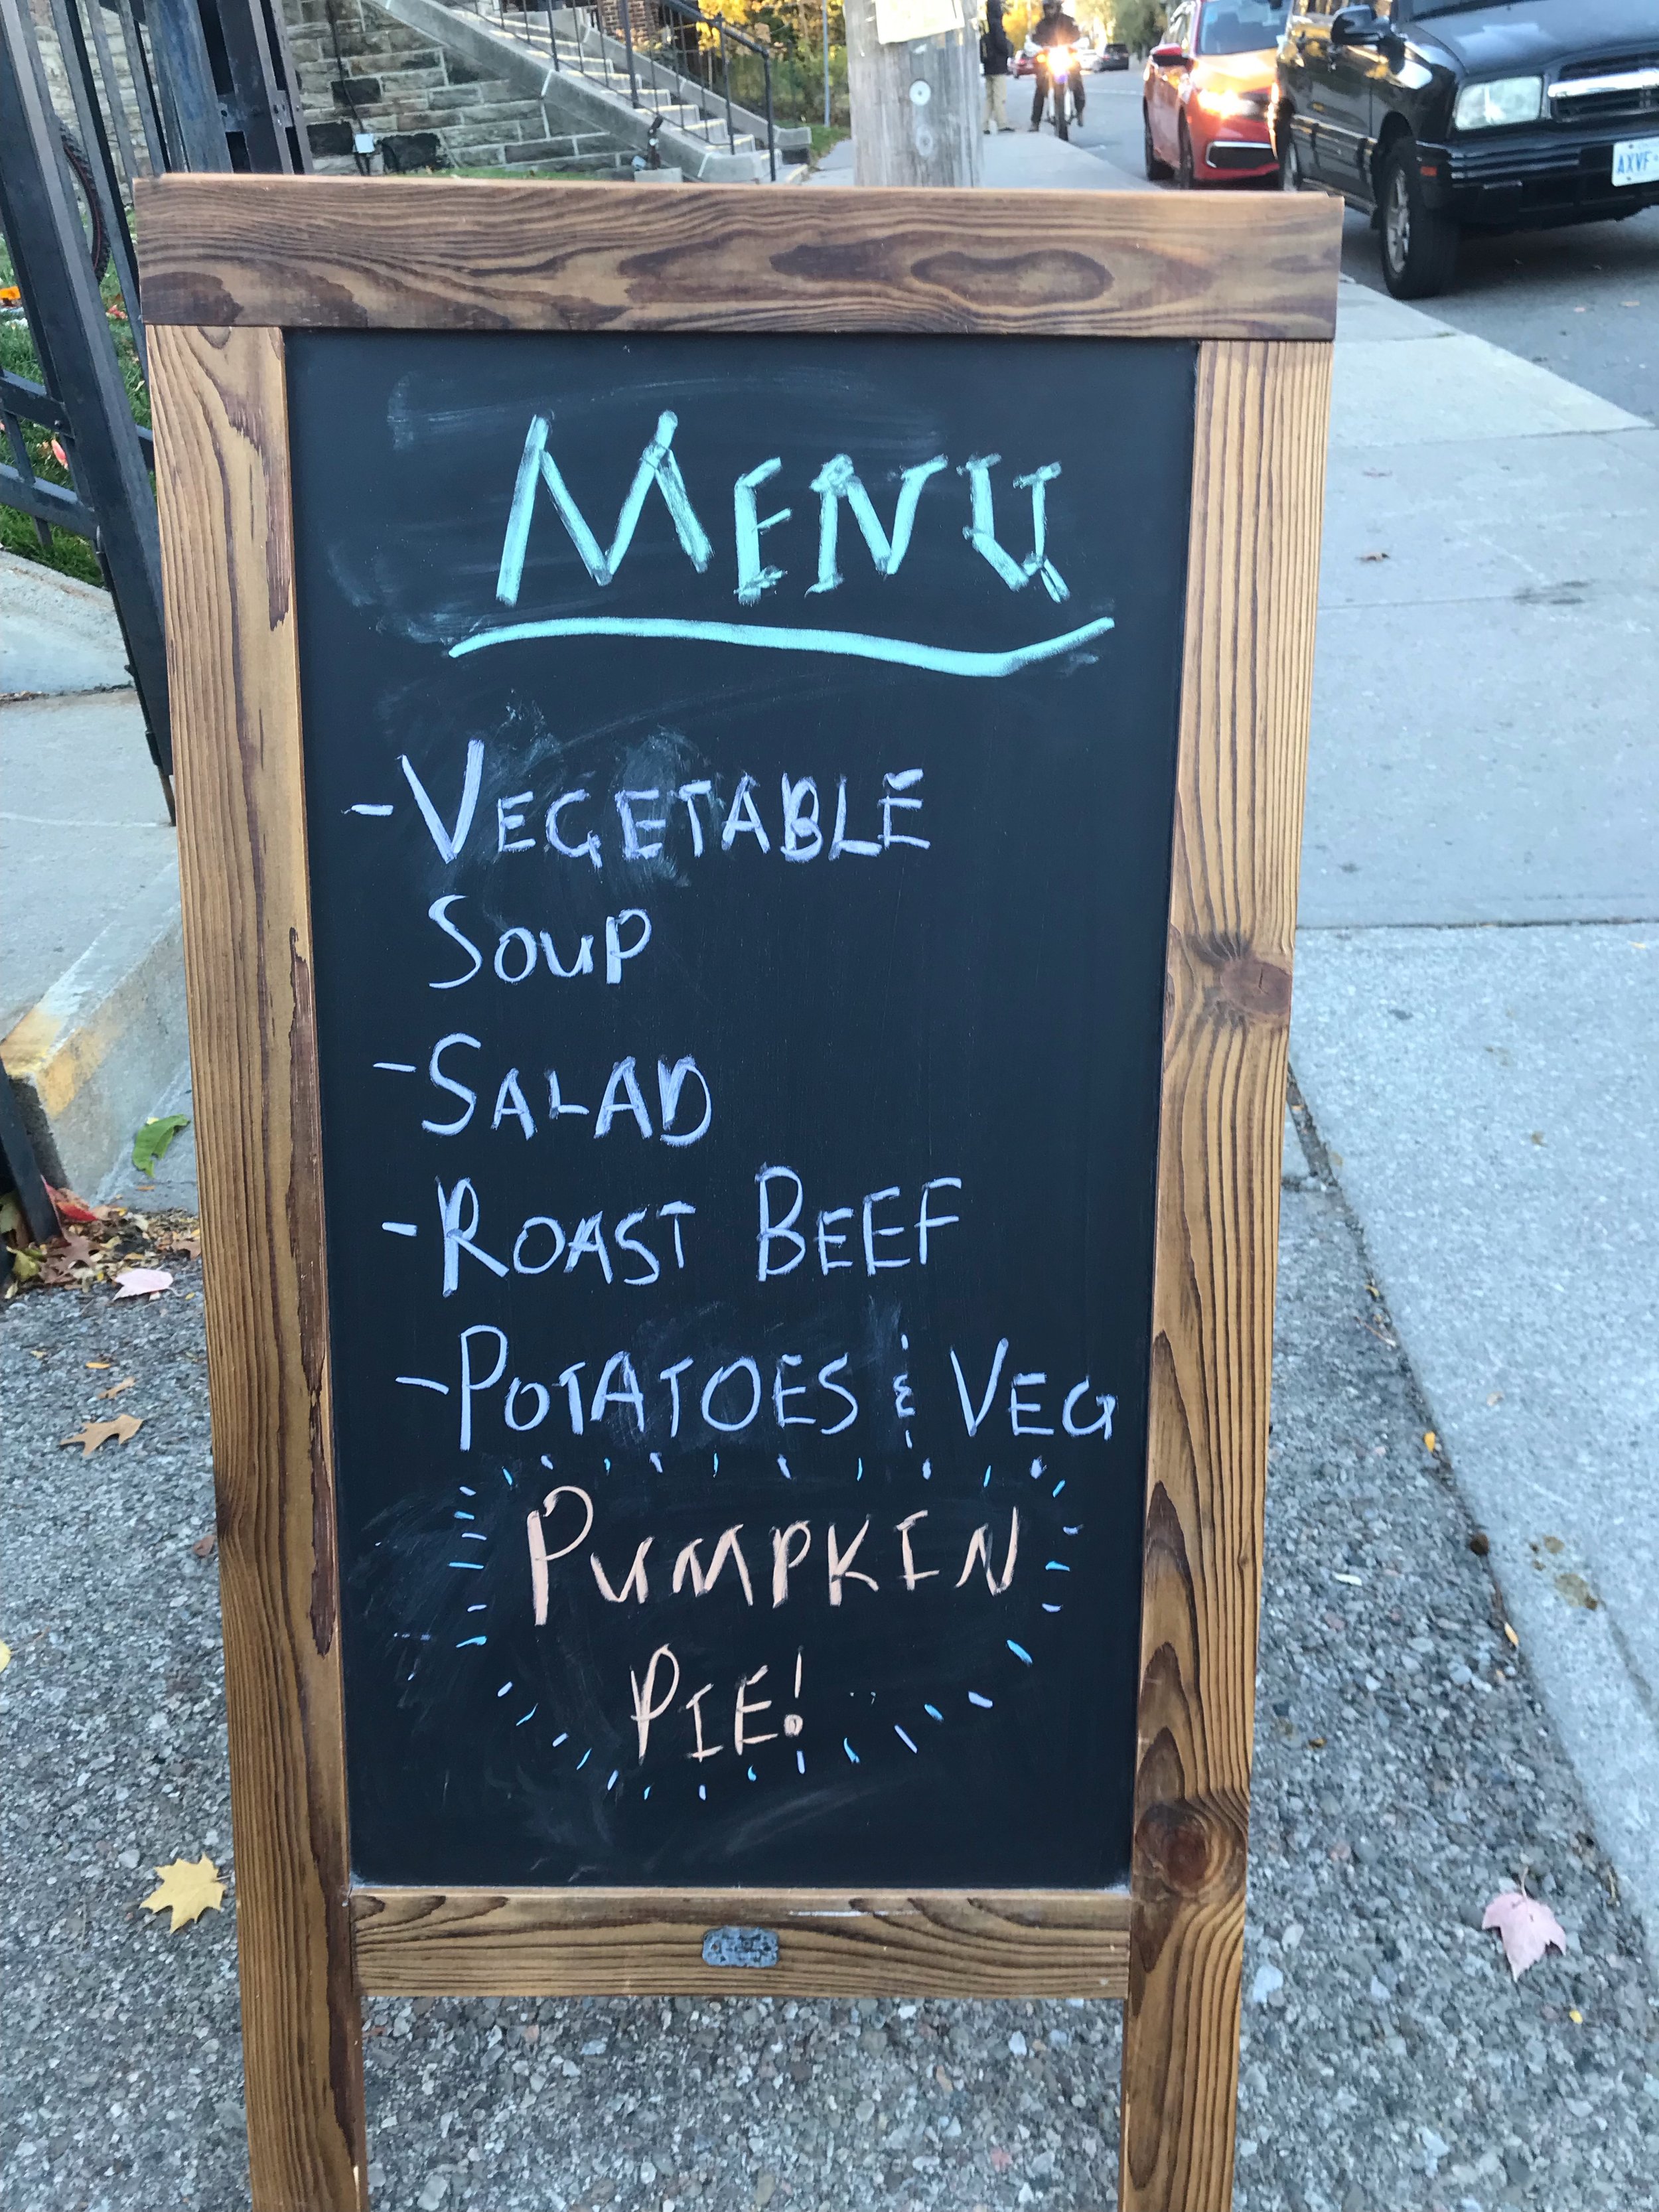 MENU
-VEGETABLE
SOUP
-SALAD
-ROAST BEEF
-POTATOES & VEG
PUMPKIN
PIE!
AXVF